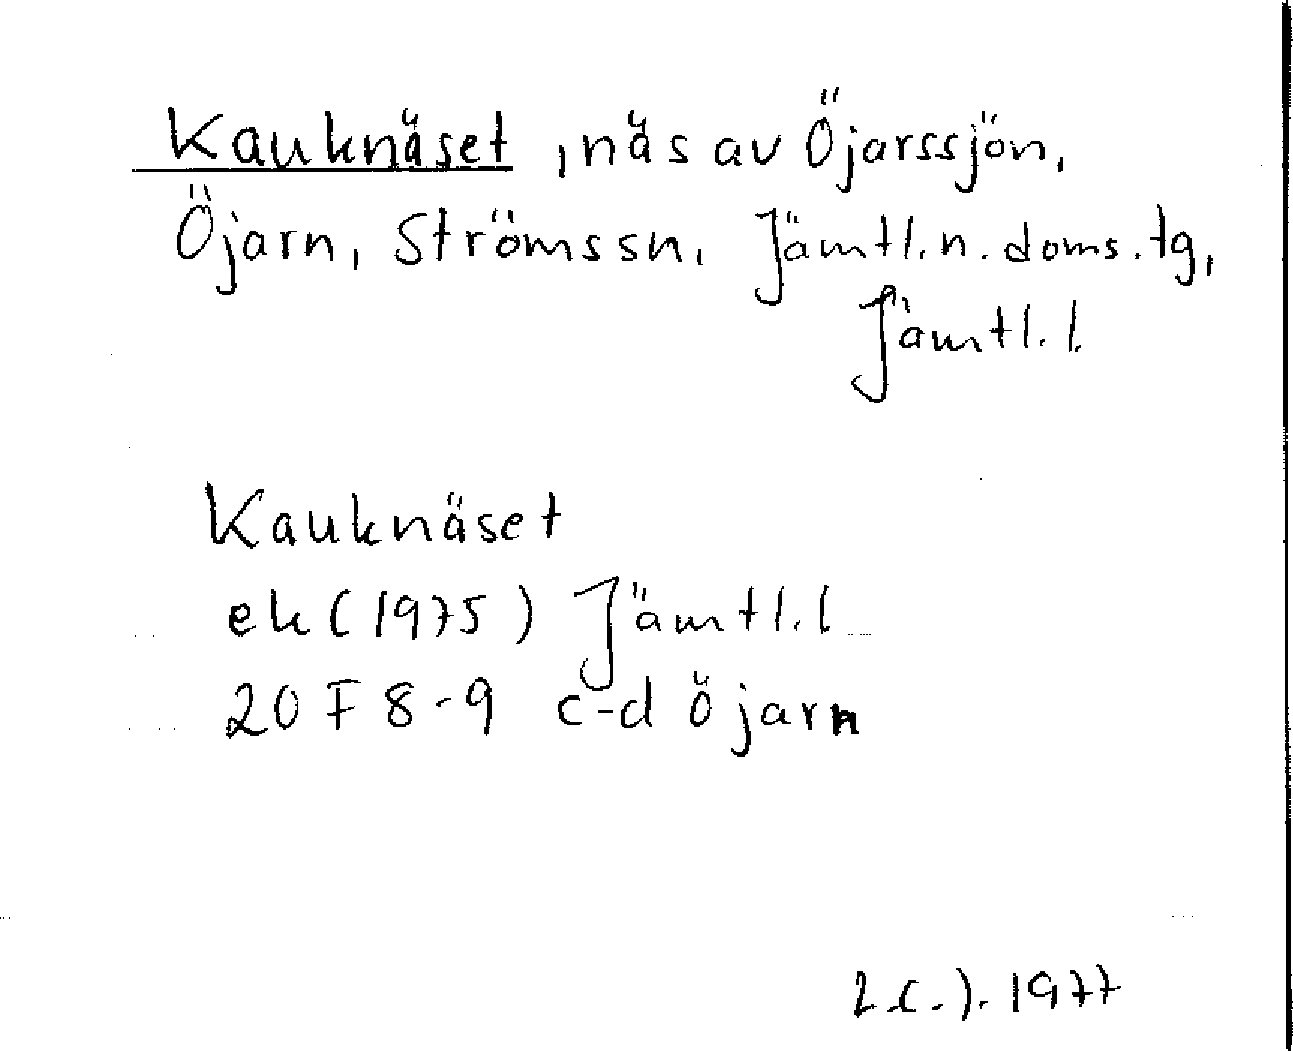 Kauknäset, näs av Öjarssjön,
Öjarn, Strömssn, Jämtl. n. doms. tg,
Jämtl. l.
Kauknäset
ek (1975) Jämtl. l
20 F 8-9 c-d öjarn
1977